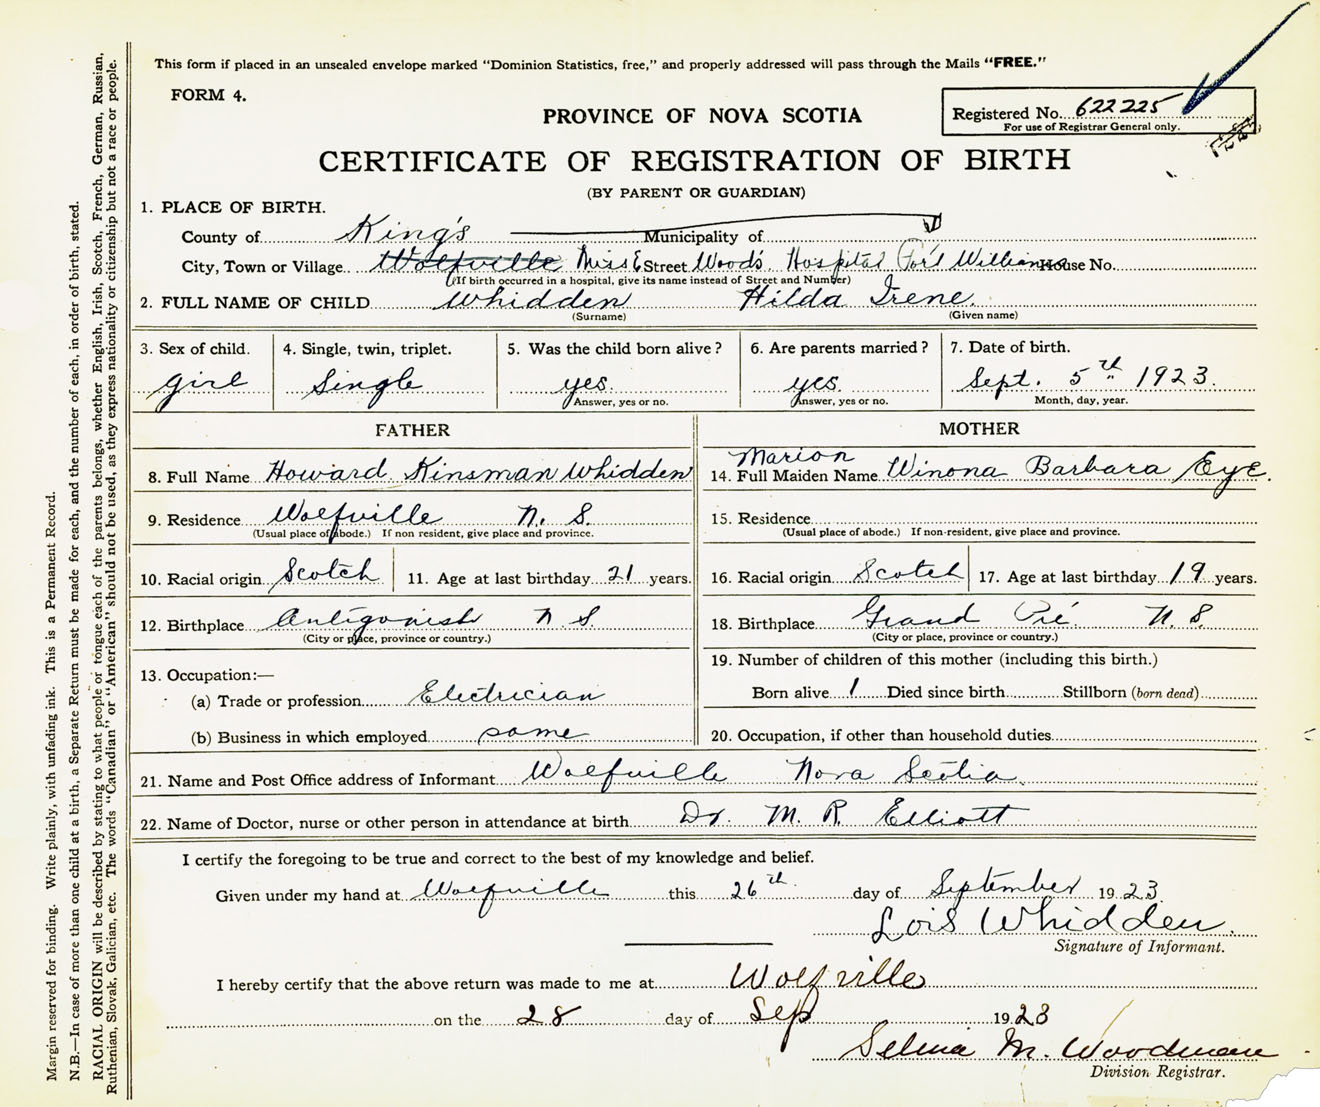 This form if placed in an unsealed envelope marked "Dominion Statistics, free," and properly addressed will pass through the Mails "FREE."
FORM 4.
Registered No. 622225
For use of Registrar General only.
PROVINCE OF NOVA SCOTIA
CERTIFICATE OF REGISTRATION OF BIRTH
(BY PARENT OR GUARDIAN)
1. PLACE OF BIRTH.
County of King's Municipality of
City, Town or Village Wolfville Miss E Street Woods Hospital Port Williams House No.
(If birth occurred in a hospital, give its name instead of Street and Number)
2. FULL NAME OF CHILD Whidden Hilda Irene.
(Surname) (Given name)
3. Sex of child. 4. Single, twin, triplet. 5. Was the child born alive? 6. Are parents married? 7. Date of birth.
girl Single yes. yes. Sept. 5th 1923.
Answer, yes or no. Answer, yes or no. Month, day, year.
FATHER
8. Full Name Howard Kinsman Whidden
9. Residence Wolfville N. S.
(Usual place of abode.) If non resident, give place and province.
10. Racial origin Scotch 11. Age at last birthday 21 years.
12. Birthplace Antigonish N. S.
(City or place, province or country.)
13. Occupation:—
(a) Trade or profession Electrician
(b) Business in which employed same
MOTHER
Marion
14. Full Maiden Name Winona Barbara Eye.
15. Residence
(Usual place of abode.) If non-resident, give place and province.
16. Racial origin Scotch 17. Age at last birthday 19 years.
18. Birthplace Grand Pré N. S.
(City or place, province or country.)
19. Number of children of this mother (including this birth.)
Born alive 1 Died since birth Stillborn (born dead)
20. Occupation, if other than household duties
21. Name and Post Office address of Informant Wolfville Nova Scotia
22. Name of Doctor, nurse or other person in attendance at birth Dr. M. R. Elliott
I certify the foregoing to be true and correct to the best of my knowledge and belief.
Given under my hand at Wolfville this 26th day of September 1923
Lois Whidden.
Signature of Informant.
I hereby certify that the above return was made to me at Wolfville
on the 28 day of Sep 1923
Selina M. Woodman
Division Registrar.
Margin reserved for binding. Write plainly, with unfading ink. This is a Permanent Record.
N.B.—In case of more than one child at a birth, a Separate Return must be made for each, and the number of each, in order of birth, stated.
RACIAL ORIGIN will be described by stating to what people or tongue each of the parents belongs, whether English, Irish, Scotch, French, German, Russian,
Ruthenian, Slovak, Galician, etc. The words "Canadian" or "American" should not be used, as they express nationality or citizenship but not a race or people.